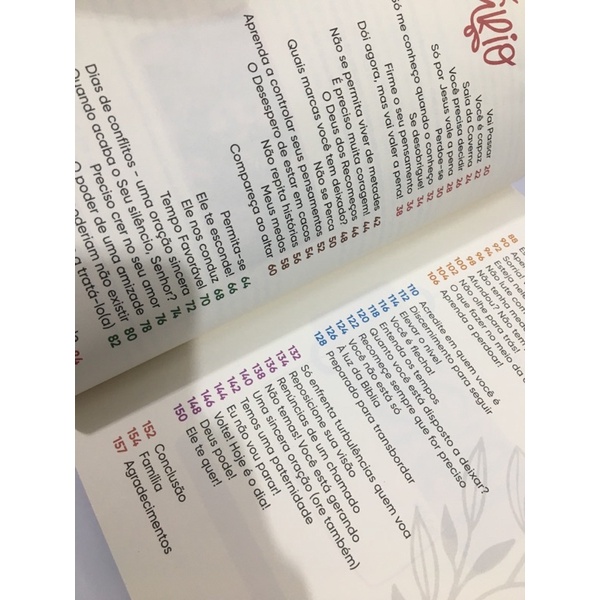 ÁRIO
Vai Passar 20
Você é capaz 22
Saia da Caverna 24
Você precisa decidir 26
Só por Jesus vale a pena 28
Perdoe-se 30
Só me conheço quando o conheço 32
Se desobrigue! 34
Firme o seu pensamento 36
Dói agora, mas vai valer a pena! 38
Não se permita viver de metades 42
É preciso muita coragem! 44
O Deus dos Recomeços 46
Quais marcas você tem deixado? 48
Não se Perca 50
Aprenda a controlar seus pensamentos 52
O Desespero de estar em cacos 54
Não repita histórias 56
Meus medos 58
Compareça ao altar 60
Permita-se 64
Ele te esconde! 66
Ele nos conduz 68
Tempo Favorável 70
Dias de conflitos - uma oração sincera 72
Quando acaba o Seu silêncio, Senhor? 74
Preciso crer no seu amor 76
O poder de uma amizade 78
não existir 80
a tratá-lo(a) 82
84
88
90
92
94 Esteja
96 Não lute com
98 Não tenha medo
100 Afundou? Não
102 Não olhe para trás!
104 O que fazer no meio da
106 Aprenda a perdoar!
110 Acredite em quem você é
112 Discernimento para seguir
114 Elevar o nível
116 Você é flecha!
118 Entenda os tempos
120 Quanto você está disposto a deixar?
122 Recomece sempre que for preciso
124 Você não está só
126 À luz da Bíblia
128 Preparado para transbordar
132 Só enfrenta turbulências quem voa
134 Reposicione sua visão
136 Renúncias de um chamado
138 Não temas! Você está gerando
140 Uma sincera oração (ore também)
142 Temos uma paternidade
144 Eu não vou parar!
146 Volte! Hoje é o dia!
148 Deus pode!
150 Ele te quer!
152 Conclusão
154 Família
157 Agradecimentos